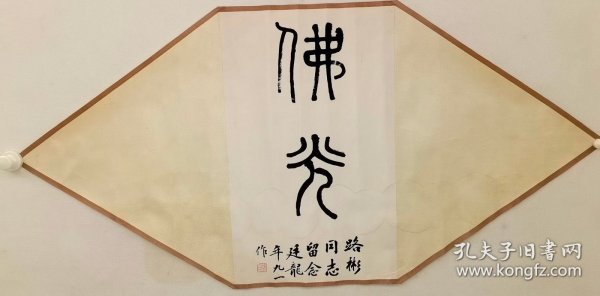 佛光
路彬
同志
留念
廷龍
年九一
作
孔夫子旧书网
www.kongfz.com